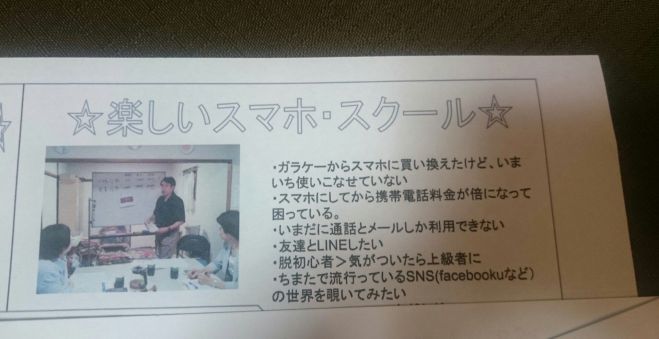 ☆楽しいスマホ・スクール☆
・ガラケーからスマホに買い換えたけど、いま
いち使いこなせていない
・スマホにしてから携帯電話料金が倍になって
困っている。
・いまだに通話とメールしか利用できない
・友達とLINEしたい
・脱初心者＞気がついたら上級者に
・ちまたで流行っているSNS(facebookuなど)
の世界を覗いてみたい